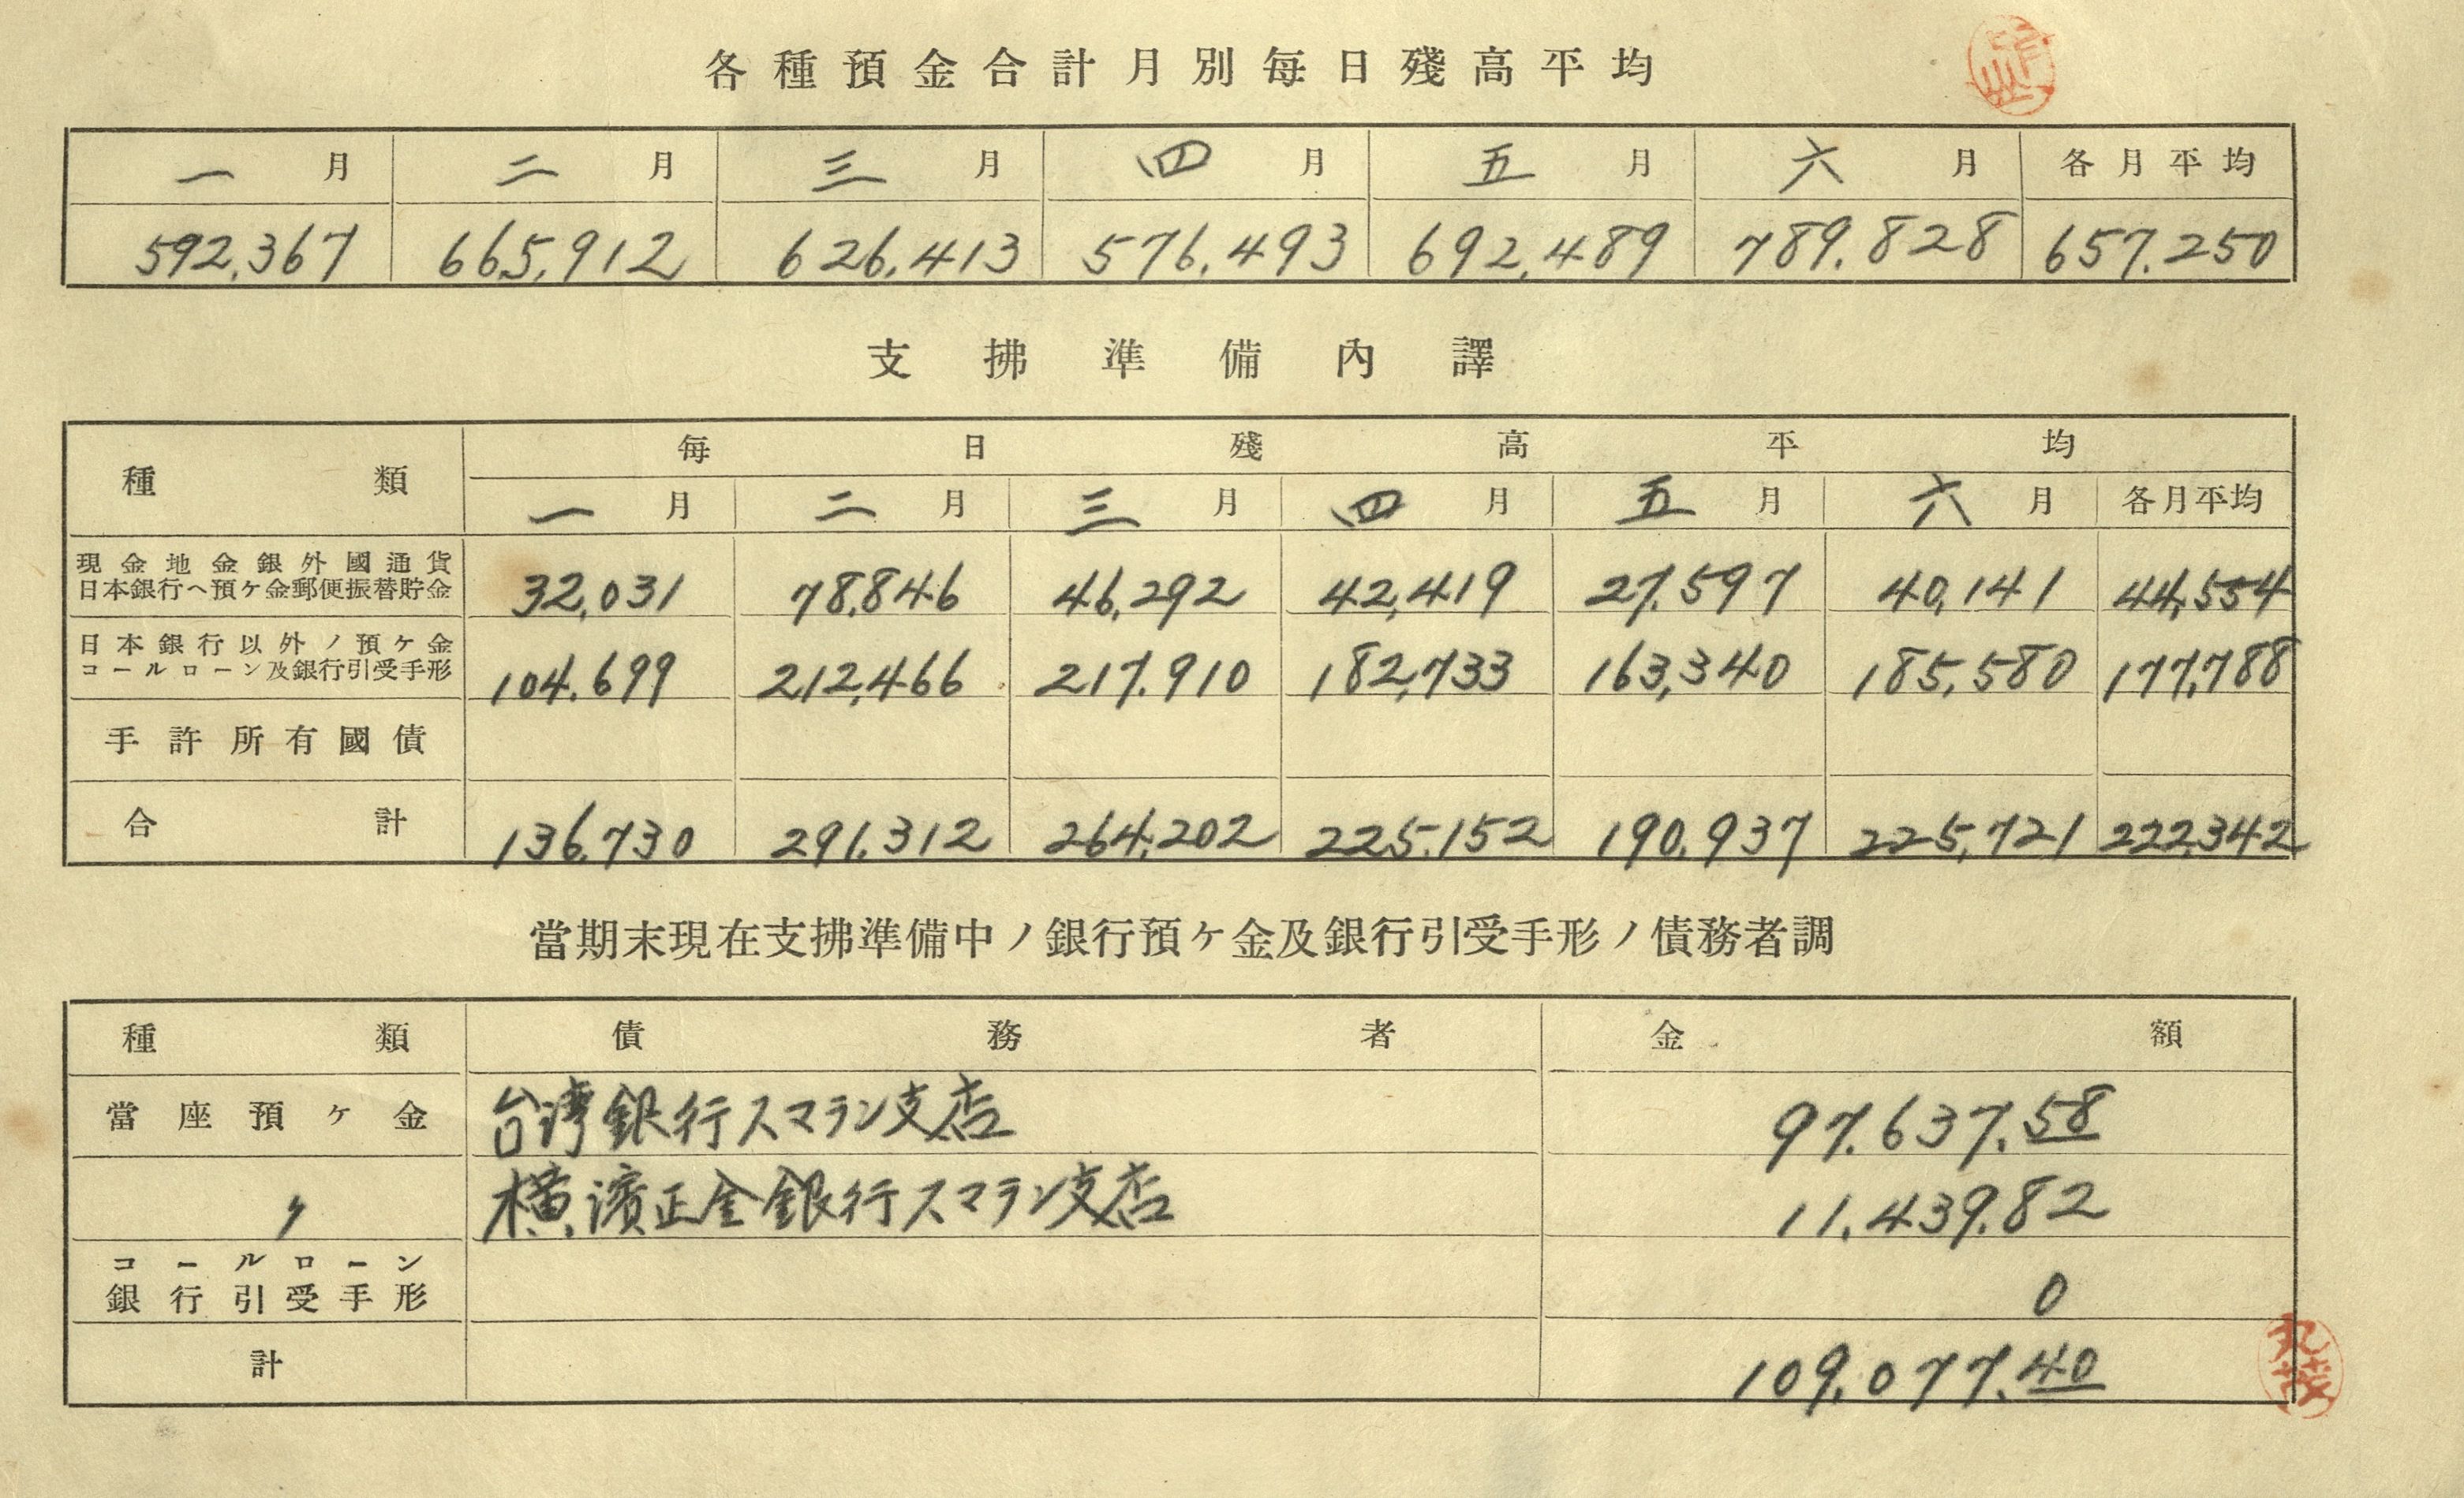 各種預金合計月別毎日殘高平均
一月 二月 三月 四月 五月 六月 各月平均
592,367 665,912 626,413 576,493 692,489 789,828 657,250
支拂準備內譯
種類 毎日殘高平均
一月 二月 三月 四月 五月 六月 各月平均
現金地金銀外國通貨
日本銀行ヘ預ケ金郵便振替貯金 32,031 78,846 46,292 42,419 27,597 40,141 44,554
日本銀行以外ノ預ケ金
コールローン及銀行引受手形 104,699 212,466 217,910 182,733 163,340 185,580 177,788
手許所有國債
合計 136,730 291,312 264,202 225,152 190,937 225,721 222,342
當期末現在支拂準備中ノ銀行預ケ金及銀行引受手形ノ債務者調
種類 債務者 金額
當座預ケ金 台湾銀行スマラン支店 97,637.58
〃 横濱正金銀行スマラン支店 11,439.82
コールローン
銀行引受手形 0
計 109,077.40